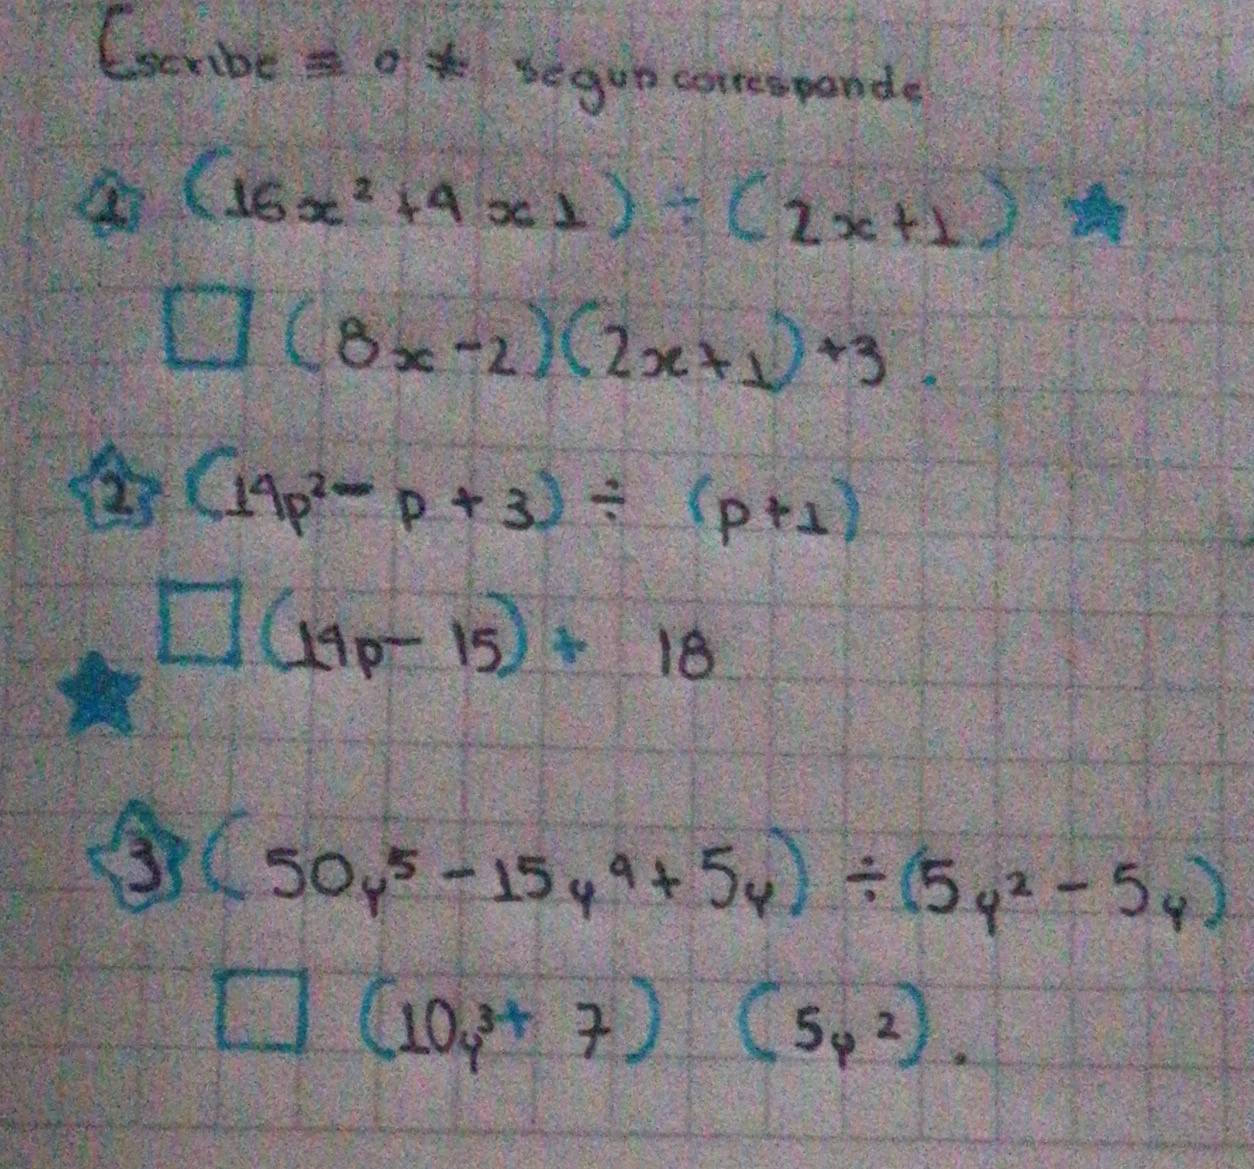 Escribe = o ≠ segun corresponde
1 (16x² + 4x1) ÷ (2x+1)
(8x-2)(2x+1)+3.
2 (14p² - p + 3) ÷ (p+1)
(14p - 15) + 18
3 (50y⁵ - 15y⁴ + 5y) ÷ (5y² - 5y)
(10y³ + 7) (5y²).